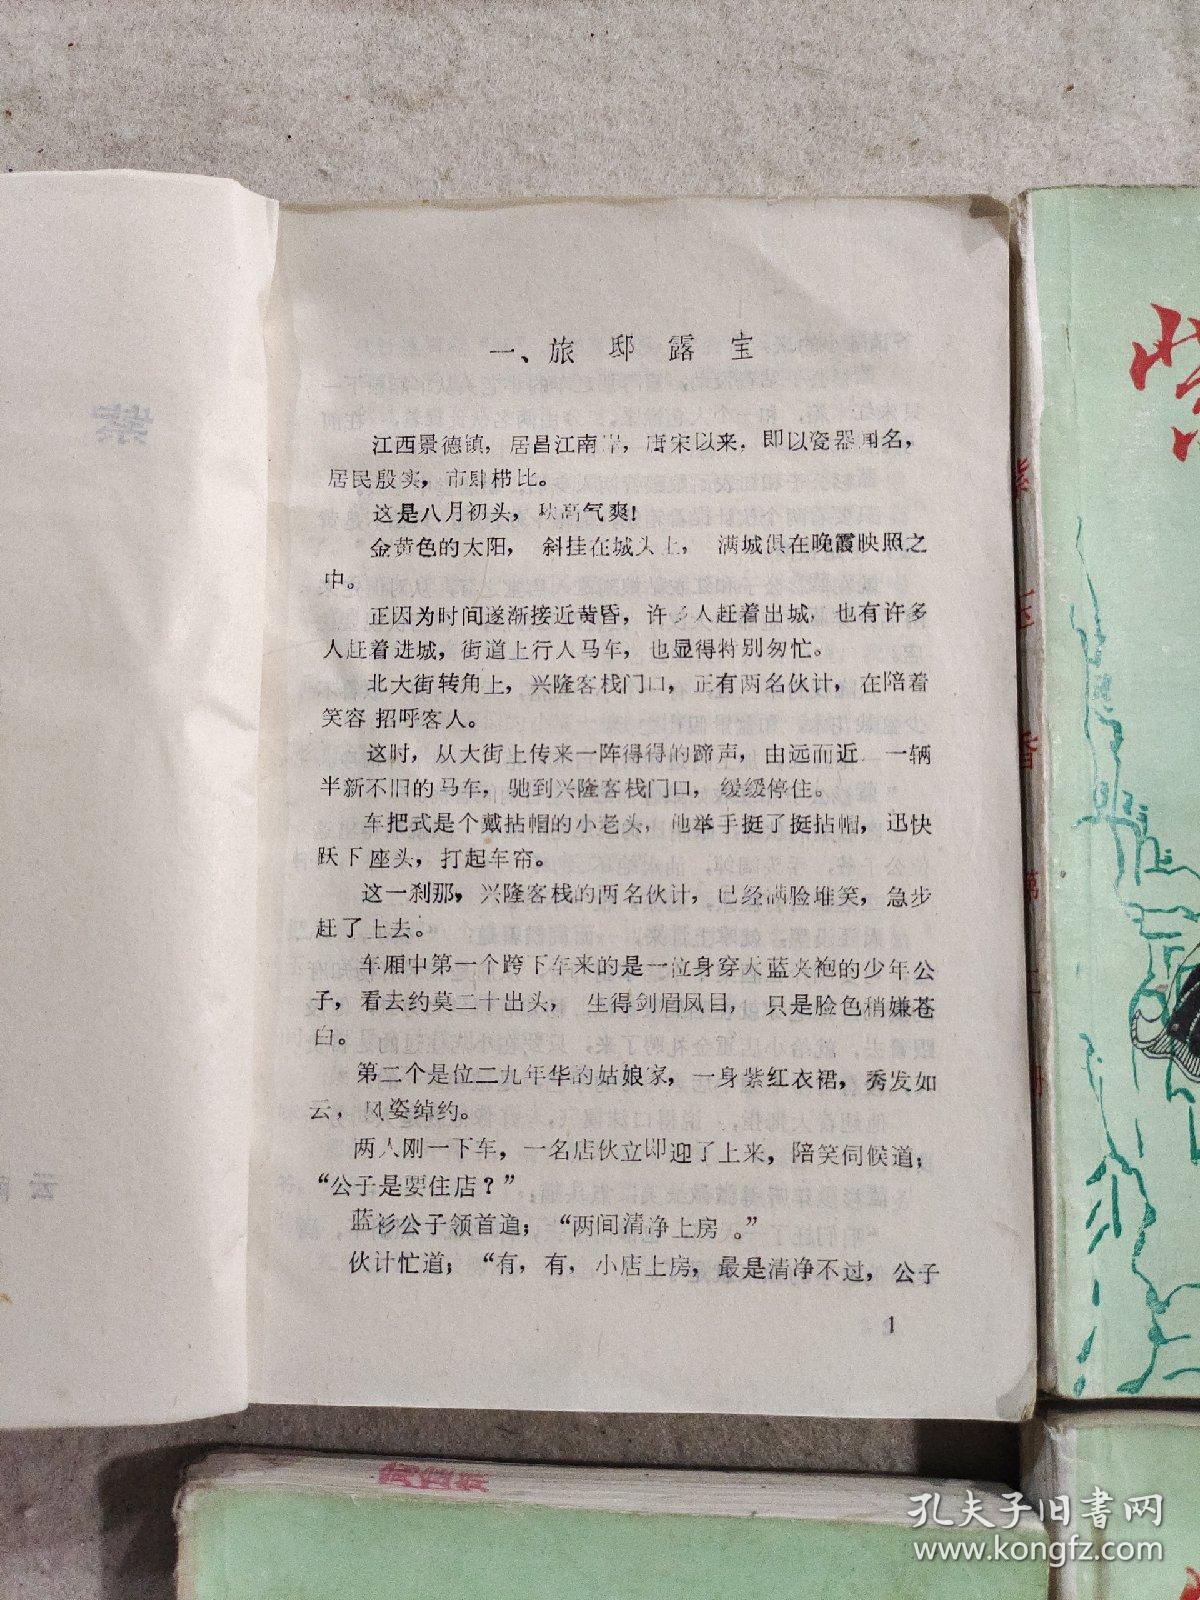 一、旅邸露宝
江西景德镇，居昌江南岸，唐宋以来，即以瓷器闻名，
居民殷实，市肆栉比。
这是八月初头，秋高气爽！
金黄色的太阳，斜挂在城头上，满城俱在晚霞映照之
中。
正因为时间逐渐接近黄昏，许多人赶着出城，也有许多
人赶着进城，街道上行人马车，也显得特别匆忙。
北大街转角上，兴隆客栈门口，正有两名伙计，在陪着
笑容招呼客人。
这时，从大街上传来一阵得得的蹄声，由远而近 一辆
半新不旧的马车，驰到兴隆客栈门口，缓缓停住。
车把式是个戴毡帽的小老头，他举手挺了挺毡帽，迅快
跃下座头，打起车帘。
这一刹那，兴隆客栈的两名伙计，已经满脸堆笑，急步
赶了上去。
车厢中第一个跨下车来的是一位身穿天蓝夹袍的少年公
子，看去约莫二十出头，生得剑眉凤目，只是脸色稍嫌苍
白。
第二个是位二九年华的姑娘家，一身紫红衣裙，秀发如
云，风姿绰约。
两人刚一下车，一名店伙立即迎了上来，陪笑伺候道；
“公子是要住店？”
蓝衫公子颔首道；“两间清净上房。”
伙计忙道；“有，有，小店上房，最是清净不过，公子
1
紫
孔夫子旧书网
www.kongfz.com